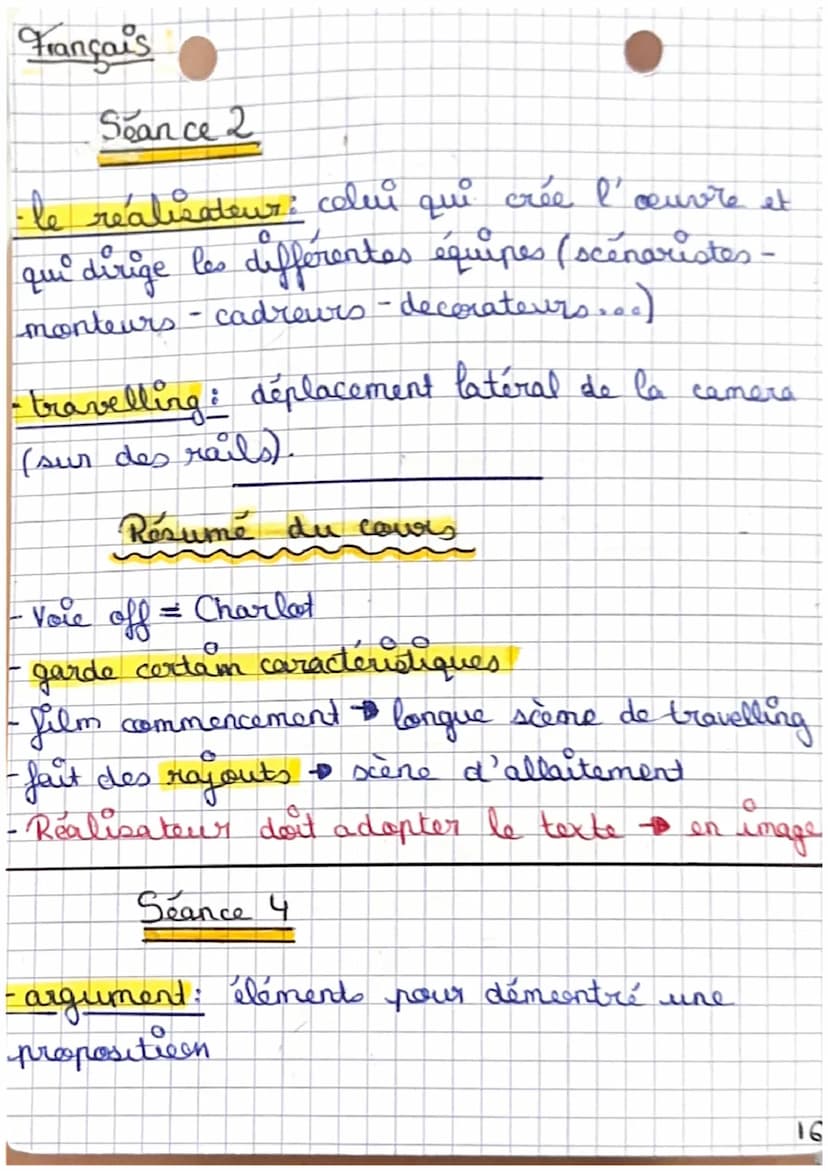 Français
Séance 2
- le réalisateur : celui qui crée l'œuvre et
qui dirige les différentes équipes (scénaristes -
monteurs - cadreurs - decorateurs...)
- travelling : déplacement latéral de la camera
(sur des rails).
Résumé du cours
- Voie off = Charlot
- garde certain caractéristiques
- film commencement → longue scème de travelling
- fait des rajouts → scène d'allaitement
- Réalisateur doit adapter le texte → en image
Séance 4
- argument : éléments pour démontré une
proposition
16